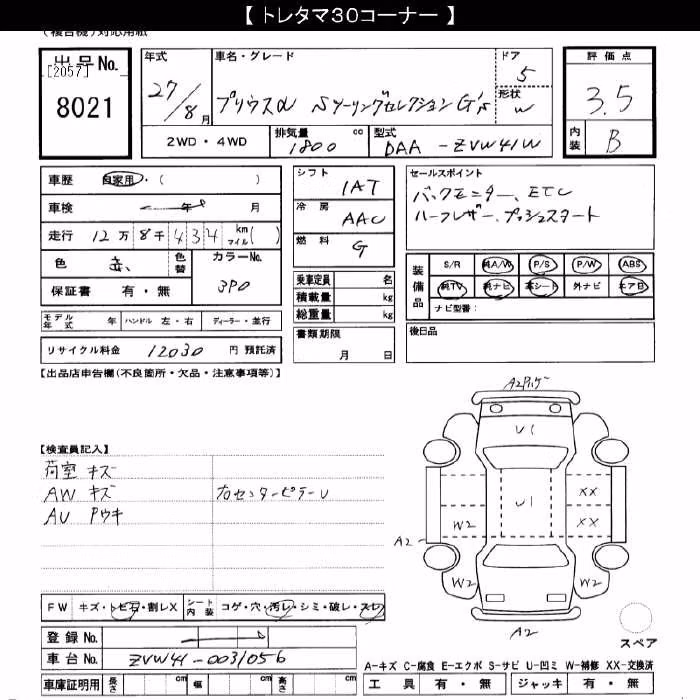 【トレタマ30コーナー】
(複合機)対応用紙
出品No. [2057]
8021
年式 27/8月
車名・グレード プリウスα Sツーリングセレクション G's
ドア 5
形状 W
評価点 3.5
内装 B
2WD・4WD
排気量 1800 cc
型式 DAA-ZVW41W
車歴 自家用・( )
車検 年 月
走行 12万8千434 km マイル( )
色 赤 色替 カラーNo. 3P0
保証書 有・無
モデル年式 年 ハンドル 左・右 ディーラー・並行
リサイクル料金 12030 円 預託済
シフト IAT
冷房 AAC
燃料 G
乗車定員 名
積載量 kg
総重量 kg
書類期限 月 日
セールスポイント
バックモニター、ETC
ハーフレザー、プッシュスタート
装備品 S/R 純A/W P/S P/W ABS
純TV 純ナビ 革シート 外ナビ エアB
ナビ型番:
後日品
【出品店申告欄(不良箇所・欠品・注意事項等)】
【検査員記入】
荷室 キズ
AW キズ
AU Pウキ
右センターピラーU
FW キズ・トビ石・割レX シート内装 コゲ・穴・汚レ・シミ・破レ・スレ
登録No.
車台No. ZVW41-0031056
車庫証明用 長さ cm 幅 cm 高さ cm
U1
U1
XX
XX
W2
A2
W2
W2
A2
スペア
A-キズ C-腐食 E-エクボ S-サビ U-凹ミ W-補修 XX-交換済
工具 有・無 ジャッキ 有・無